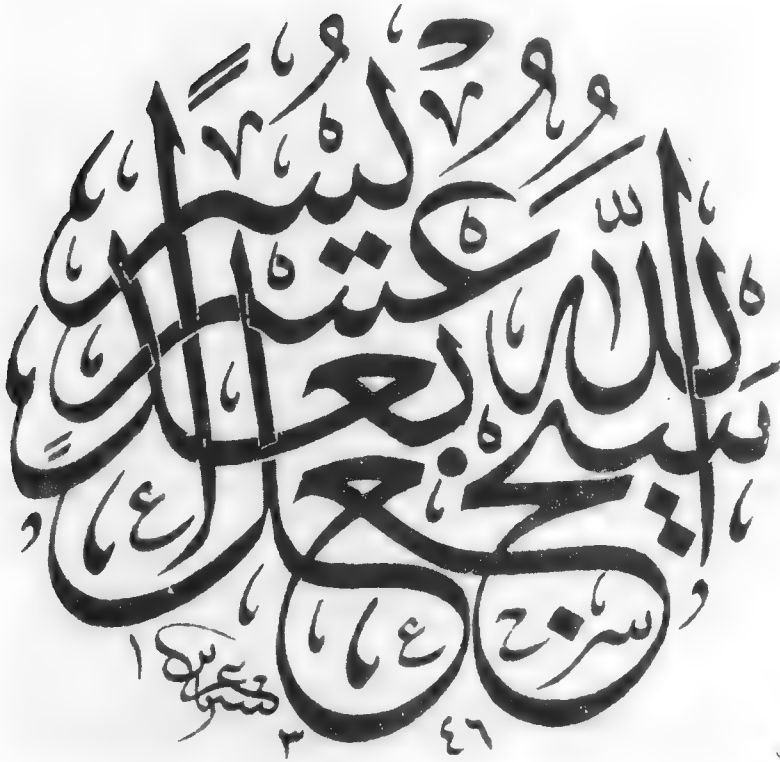 سيجعل الله بعد عسر يسرا
١٣٤٦